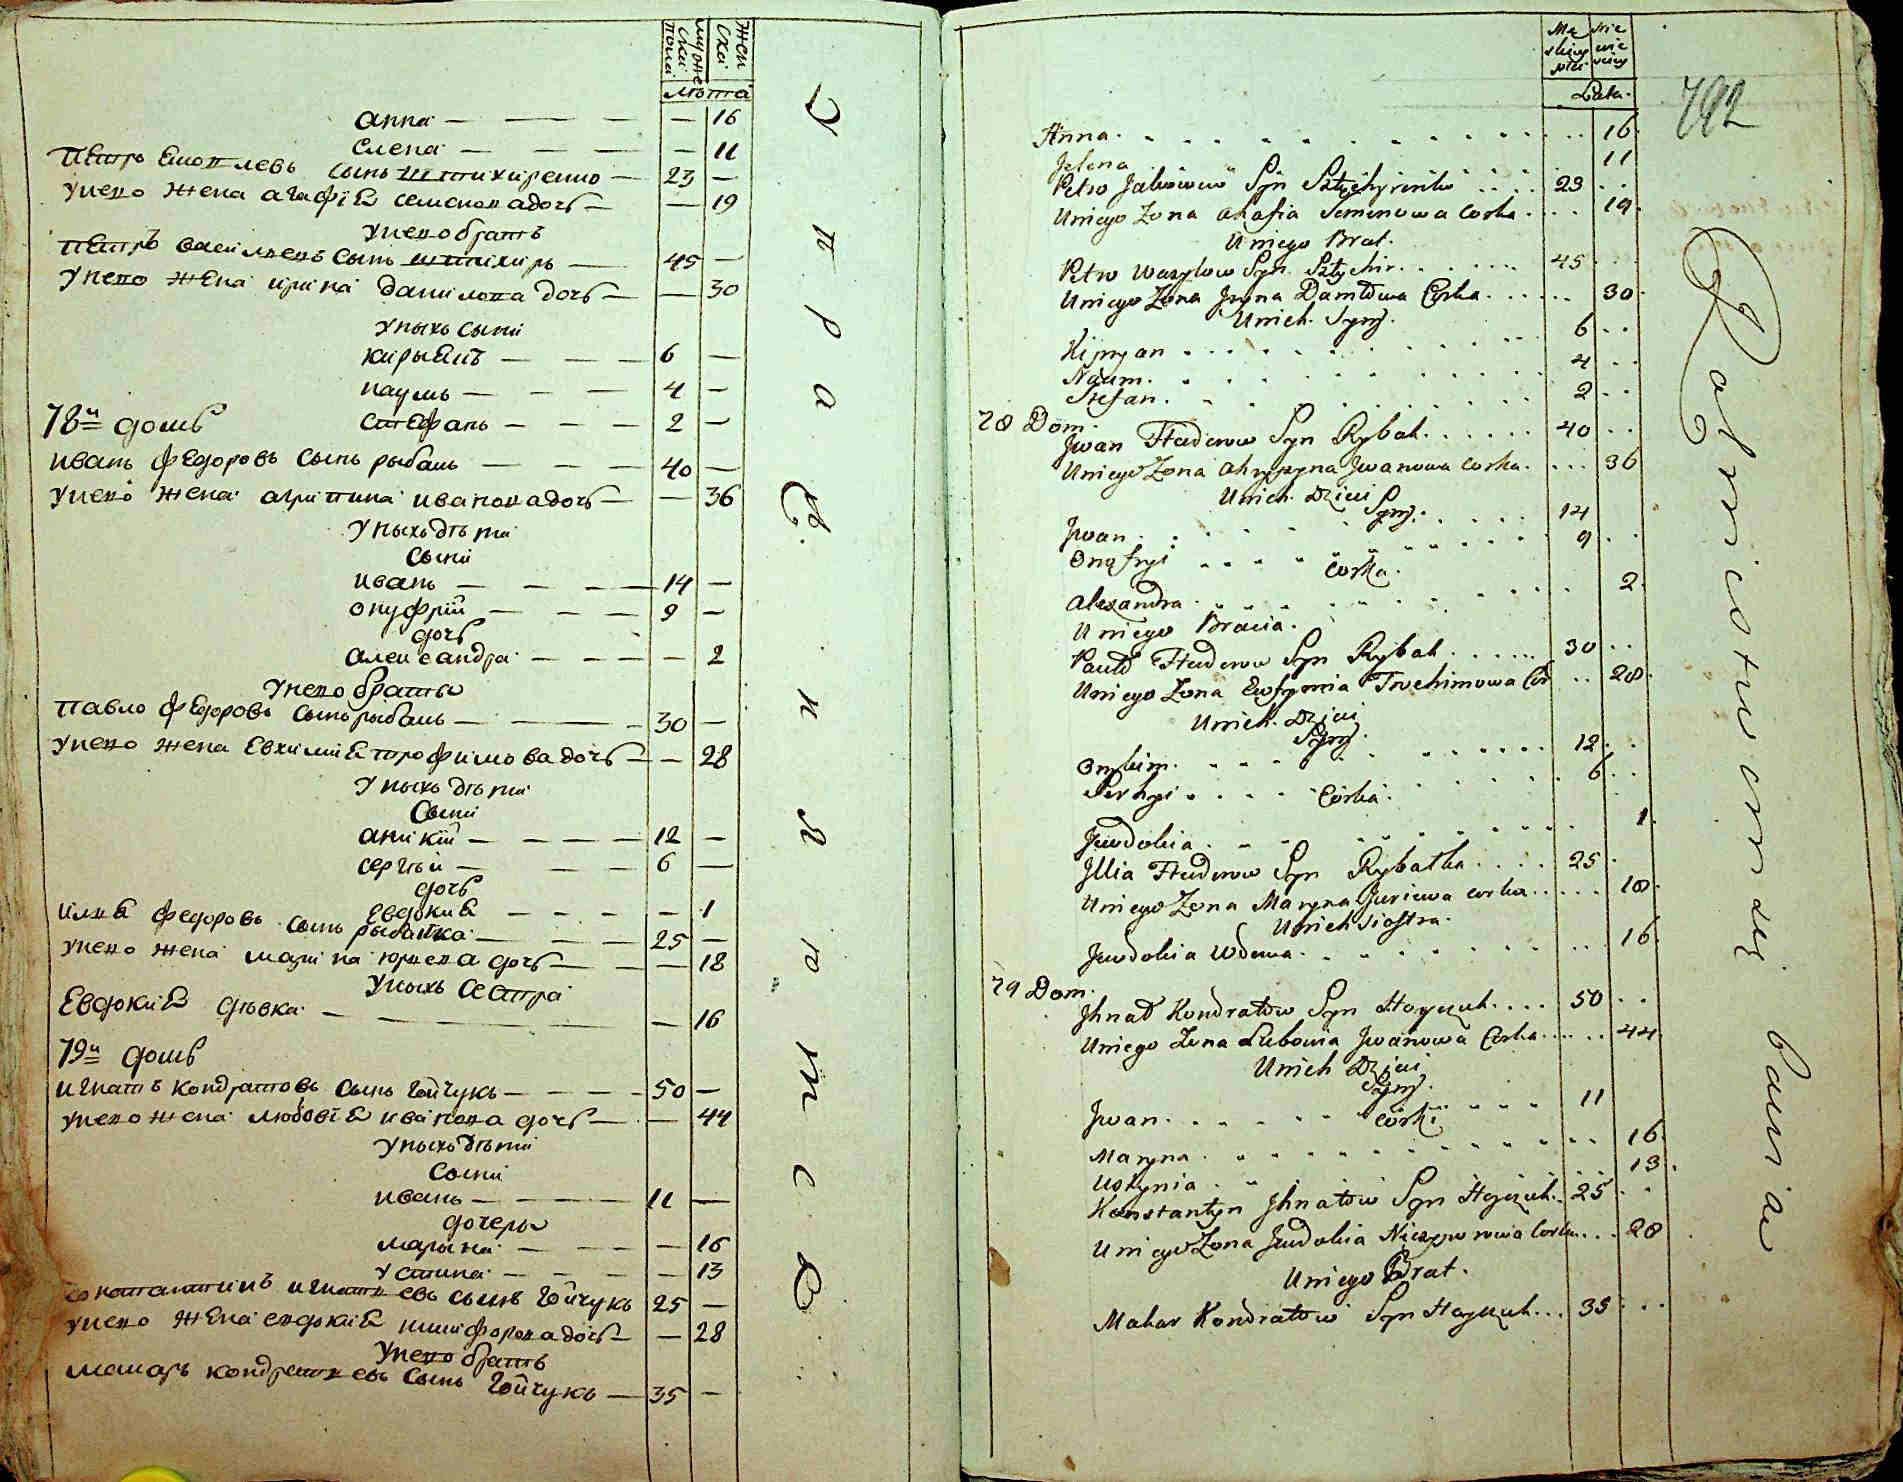 мужеска пола
женска
лѣта
анна — 16
елена — 11
петръ яковлевъ сынъ штихиренко — 23 —
унего жена агафія семенова дочь — — 19
унего братъ
петръ васильевъ сынъ штихиръ — 45 —
унего жена ирина данилова дочь — — 30
уныхъ сыни
кирыянъ — 6 —
наумъ — 4 —
стефанъ — 2 —
78й домъ
иванъ федоровъ сынъ рыбакъ — 40 —
унего жена агрипина иванова дочь — — 36
уныхъ дѣти
сыни
иванъ — 14 —
онуфрій — 9 —
дочь
александра — — 2
унего браты
павло федоровъ сынъ рыбакъ — 30 —
унего жена евхимия трофимова дочь — — 28
уныхъ дѣти
сыни
аникій — 12 —
сергѣй — 6 —
дочь
евдокия — — 1
илия федоровъ сынъ рыбалка — 25 —
унего жена марина юрева дочь — — 18
уныхъ сестра
евдокия дѣвка — — 16
79й домъ
игнатъ кондратовъ сынъ гойчукъ — 50 —
унего жена любовія иванова дочь — — 44
уныхъ дѣти
сыни
иванъ — 11 —
дочеры
марына — — 16
устина — — 13
константинъ игнатевъ сынъ гойчукъ 25 —
унего жена евдокия никифорова дочь — — 28
унего братъ
макаръ кондратевъ сынъ гойчукъ — 35 —
Lata.
792
Anna. 16.
Jelena 11
Petro Jakowiew Syn Sztychirenko 23
Uniego Zona Ahafia Semenowa Corka. 19.
Uniego Brat.
Petro Wasylow Syn Sztychir. 45
Uniego Zona Jryna Daniłowa Corka. 30.
Unich. Syny.
Kipryan 6
Naum. 4
Stefan. 2
78 Dom.
Jwan Fedorow Syn Rybak. 40
Uniego Zona Ahrypyna Jwanowa Corka. 36
Unich Dzieci
Syny.
Jwan 14
Onofryi 9
Corka.
Alexandra. 2.
Uniego Bracia.
Pauło Fedorow Syn Rybak 30
Uniego Zona Ewfymia Trochimowa Cor 28.
Unich. Dzieci
Syny.
Onykim. 12.
Serhyi 6
Corka.
Jewdokia 1.
Jllia Fedorow Syn Rybałka 25
Uniego Zona Maryna Juriewa corka 18.
Unich Siostra.
Jewdokia Wdowa. 16.
79 Dom.
Jhnat Kondratow Syn Hoyczuk. 50
Uniego Zona Lubowia Jwanowa Corka. 44.
Unich Dzieci
Syny.
Jwan. 11
Corki
Maryna 16.
Ustynia 13.
Konstantyn Jhnatow Syn Hoyczuk. 25
Uniego Zona Jewdokia Corka. 28
Uniego Brat.
Makar Kondratow Syn Hoyczuk. 35